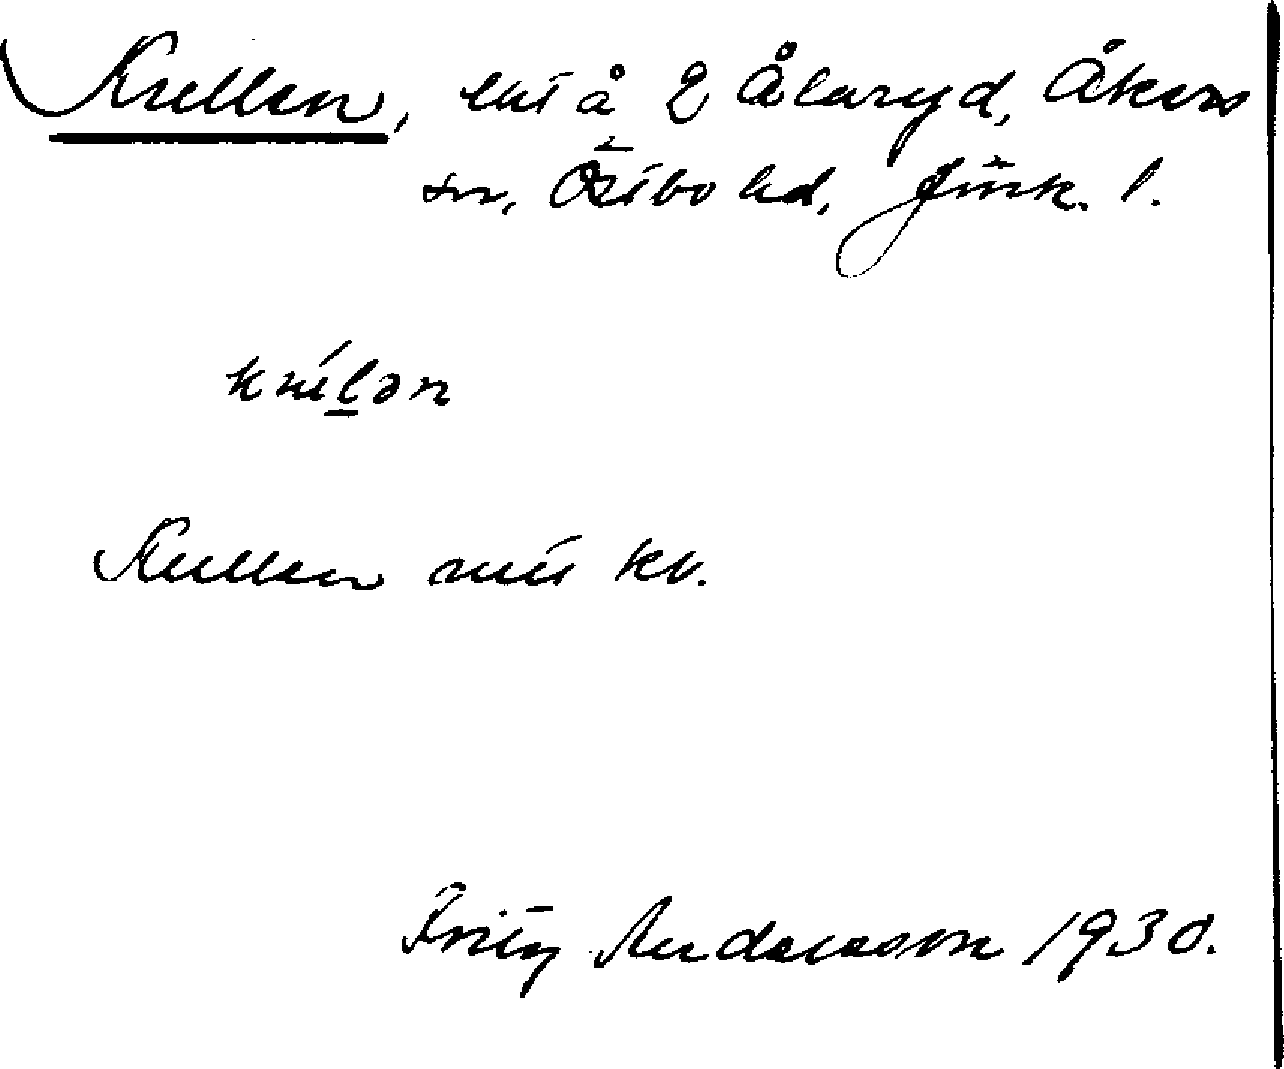 Kullen, lht å 2 Ålaryd, Åkers
sn, Östbo hd, Jönk. l.
Kullen
Fritz Andersson 1930.